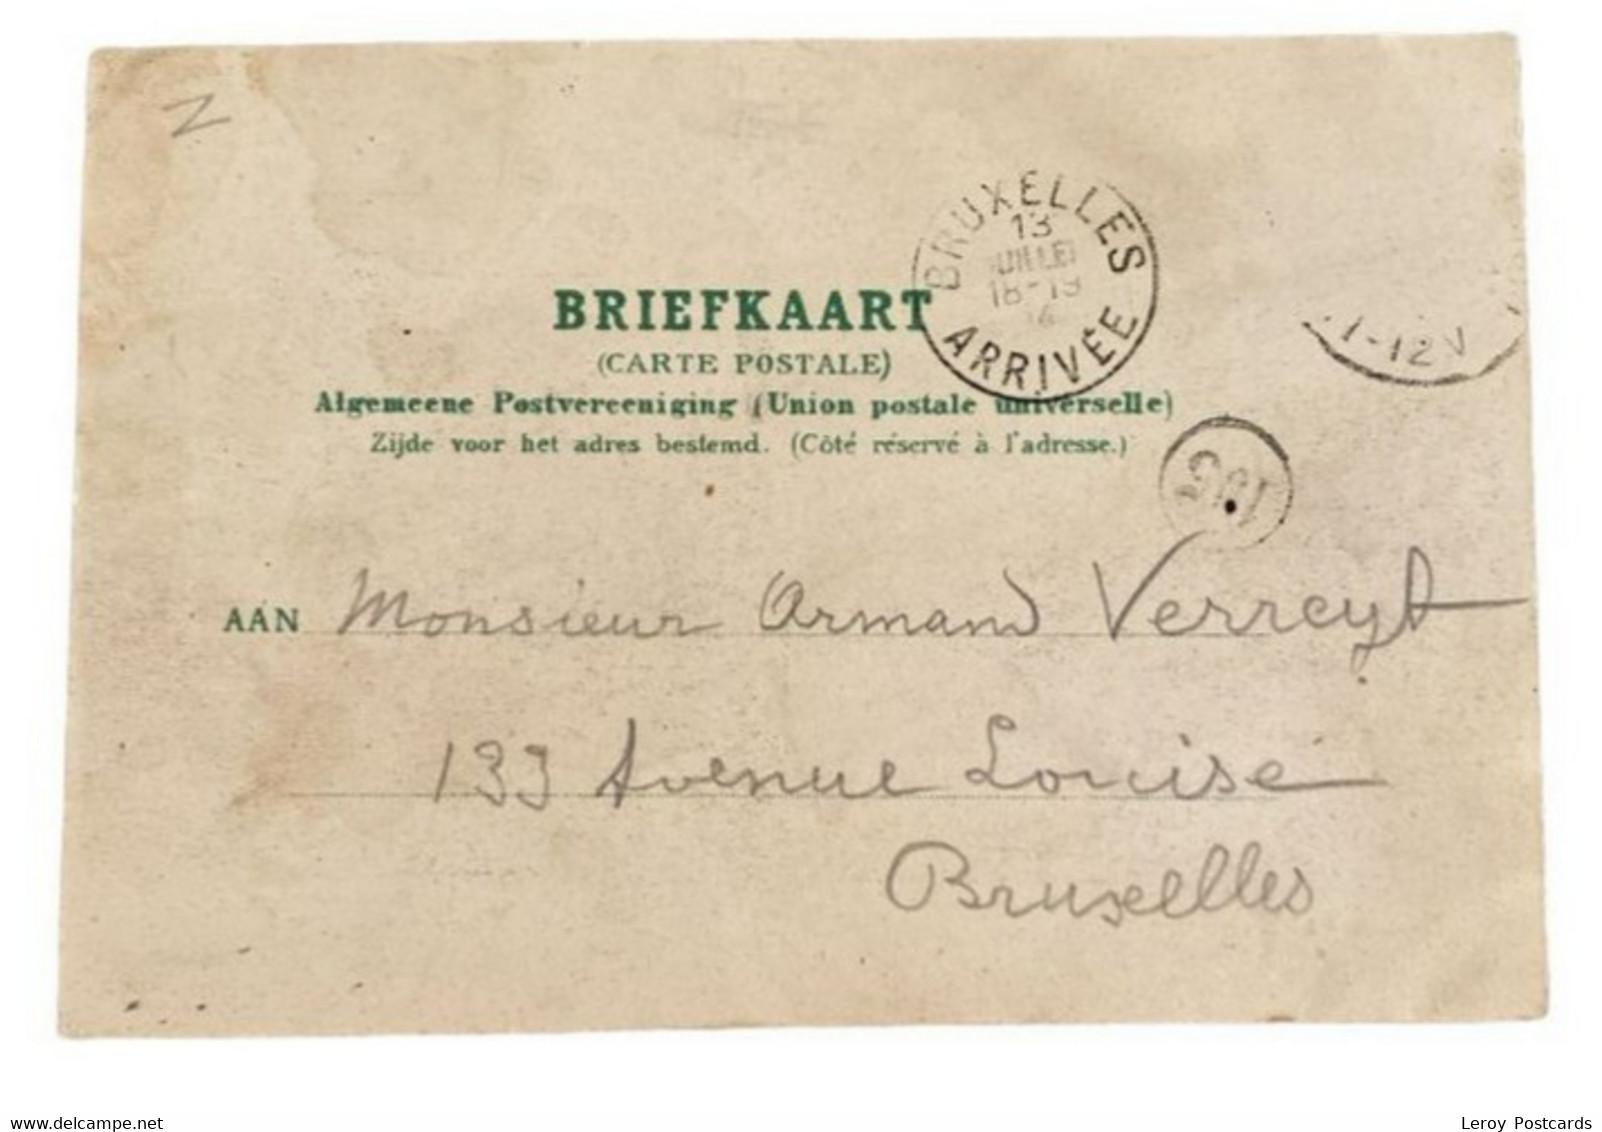 BRUXELLES
13
JUILLET
18-19
4
ARRIVÉE
1-12 V
BRIEFKAART
(CARTE POSTALE)
Algemeene Postvereeniging (Union postale universelle)
Zijde voor het adres bestemd. (Côté réservé à l'adresse.)
AAN Monsieur Armand Verreyt
133 Avenue Louise
Bruxelles
delcampe.net
Leroy Postcards